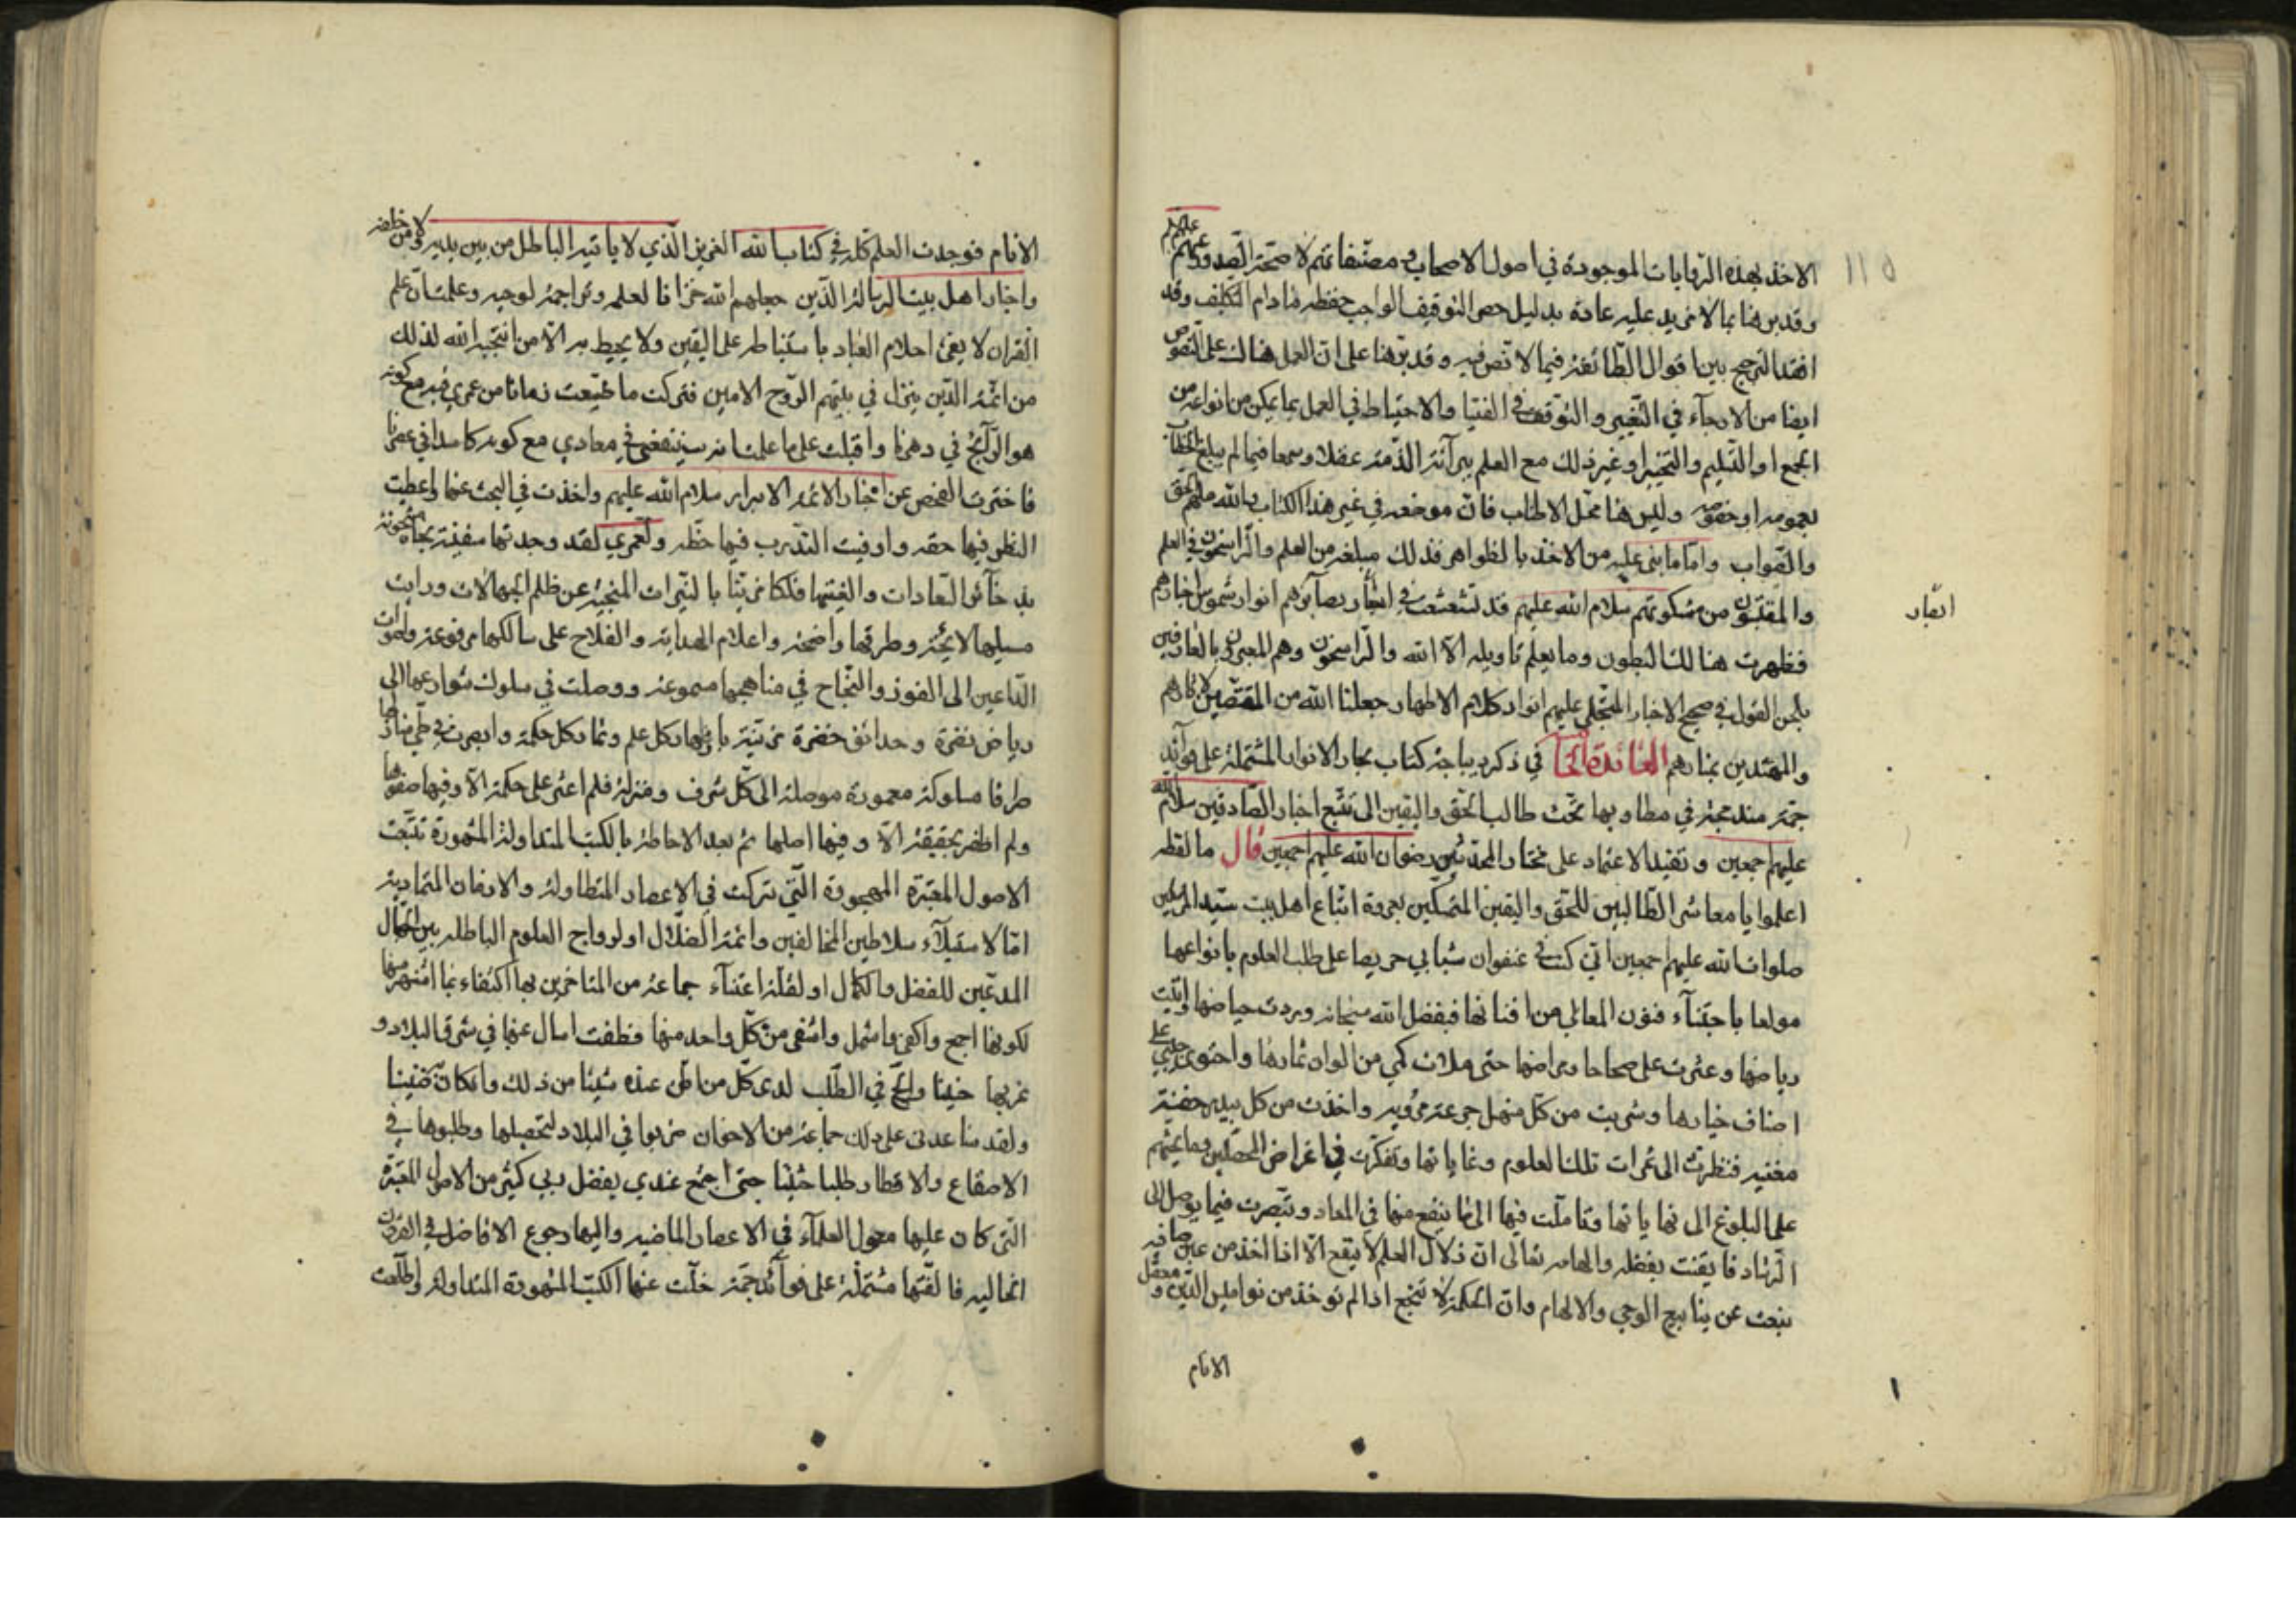 الاخذ بهذه الروايات الموجودة في اصول الاصحاب و مصنفاتهم لا صحة الصدور عنهم عليهم
وقد برهنا بما لا مزيد عليه عادة بدليل حصر التوقيف الواجب حفظه ما دام التكليف وقد
افتقد الترجيح بين اقوال الطائفة فيما لا نص فيه وقد برهنا على ان العمل هنالك على النصوص
ايضا من الارجاء في التخيير والتوقف في الفتيا والاحتياط في العمل بما يمكن من انواعه من
الجمع او التسليم والتخيير او غير ذلك مع العلم ببرآئة الذمة عقلا وسمعا فيما لم يبلغ الخطاب
بعمومه او خصوصه وليس هنا محل الاطناب فان موضعه في غير هذا الكتاب والله ملهم الحق
والصواب واما ما بنى عليه من الاخذ بالظواهر فذلك مبلغه من العلم والراسخون في العلم
والمقتبسون من مشكوتهم سلام الله عليهم قد تشعشعت في بصآئرهم انوار شموس اخبارهم
ابصار
فظهرت هنالك البطون وما يعلم تاويله الا الله والراسخون وهم المعبرون بالعارفين
بلحن القول في صحيح الاخبار المتجلى عليهم انوار كلام الاطهار جعلنا الله من المقتصين لاثارهم
والمهتدين بمنارهم الفائدة في ذكر ديباجة كتاب بحار الانوار المشتملة على فوآئد
جمة مندمجة في مطاويها تحث طالب الحق واليقين الى تتبع اخبار الصادقين سلام الله
عليهم اجمعين وتفيد الاعتماد على مختار المحدثين رضوان الله عليهم اجمعين قال ما لفظه
اعلموا يا معاشر الطالبين للحق واليقين المتمسكين بعروة اتباع اهل بيت سيد المرسلين
صلوات الله عليهم اجمعين اني كنت في عنفوان شبابي حريصا على طلب العلوم بانواعها
مولعا باجتنآء فنون المعالي من افنانها فبفضل الله سبحانه وردت حياضها واتيت
رياضها وعثرت على صحاحها ومراضها حتى ملات كمي من الوان ثمارها واحتوى جيبي على
اصناف خيارها وشربت من كل منهل جرعة مروية واخذت من كل بيدر حفنة
مغنية فنظرت الى ثمرات تلك العلوم وغاياتها وتفكرت في اغراض المحصلين وما يحثهم
على البلوغ الى نهاياتها وتاملت فيها الى ما ينفع منها في المعاد وتبصرت فيما يوصل الى
الرشاد فايقنت بفضله والهامه تعالى ان زلال العلم لا ينقع الا اذا اخذ من عين صافية
نبعت عن ينابيع الوحي والالهام وان الحكمة لا تنجع اذا لم توخذ من نواميس الدين ومعقل
الانام
الانام فوجدت العلم كله في كتاب الله العزيز الذي لا ياتيه الباطل من بين يديه ولا من خلفه
واخبار اهل بيت الرسالة الذين جعلهم الله خزانا لعلمه وتراجمة لوحيه وعلمت ان علم
القران لا يفي احلام العباد باستنباطه على اليقين ولا يحيط به الا من انتجبه الله لذلك
من ائمة الدين ينزل في بيتهم الروح الامين فتركت ما ضيعت زمانا من عمري فيه مع كونه
هو الرآئج في دهرنا واقبلت على ما علمت انه سينفعني في معادي مع كونه كاسدا في عصرنا
فاخترت الفحص عن اخبار الائمة الابرار سلام الله عليهم واخذت في البحث عنها واعطيت
النظر فيها حقه واوفيت التدرب فيها حظه ولعمري لقد وجدتها سفينة نجاة مشحونة
بذخآئر السعادات والفيتها فلكا مزينا بالنيرات المنجية عن ظلم الجهالات ورايت
سبلها لايحة وطرقها واضحة واعلام الهداية والفلاح على سالكها مرفوعة واصوات
الداعين الى الفوز والنجاح في مناهجها مسموعة ووصلت في سلوك شوارعها الى
رياض نضرة وحدائق خضرة مزينة بازهار كل علم وثمار كل حكمة وابصرت في طي منازلها
طرقا مسلوكة معمورة موصلة الى كل شرف ومنزلة فلم اعثر على حكمة الا وفيها صفوها
ولم اظفر بحقيقة الا وفيها اصلها ثم بعد الاحاطة بالكتب المتداولة المشهورة تتبعت
الاصول المعتبرة المهجورة التي تركت في الاعصار المتطاولة والازمان المتمادية
اما لاستيلآء سلاطين المخالفين وائمة الضلال او لرواج العلوم الباطله بين الجهال
المدعين للفضل والكمال او لقلة اعتنآء جماعة من المتاخرين بها اكتفاء بما اشتهر منها
لكونها اجمع واكفى واشمل واشفى من كل واحد منها فطفقت اسال عنها في شرق البلاد و
غربها حينا والح في الطلب لدى كل من اظن عنده شيئا من ذلك وان كان ضنينا
ولقد ساعدني على ذلك جماعة من الاخوان ضربوا في البلاد لتحصيلها وطلبوها في
الاصقاع والاقطار طلبا حثيثا حتى اجتمع عندي بفضل ربي كثير من الاصول المعتبرة
التي كان عليها معول العلمآء في الاعصار الماضية واليها رجوع الافاضل في القرون
الخاليه فالفتها مشتملة على فوآئد جمة خلت عنها الكتب المشهورة المتداولة واطلعت